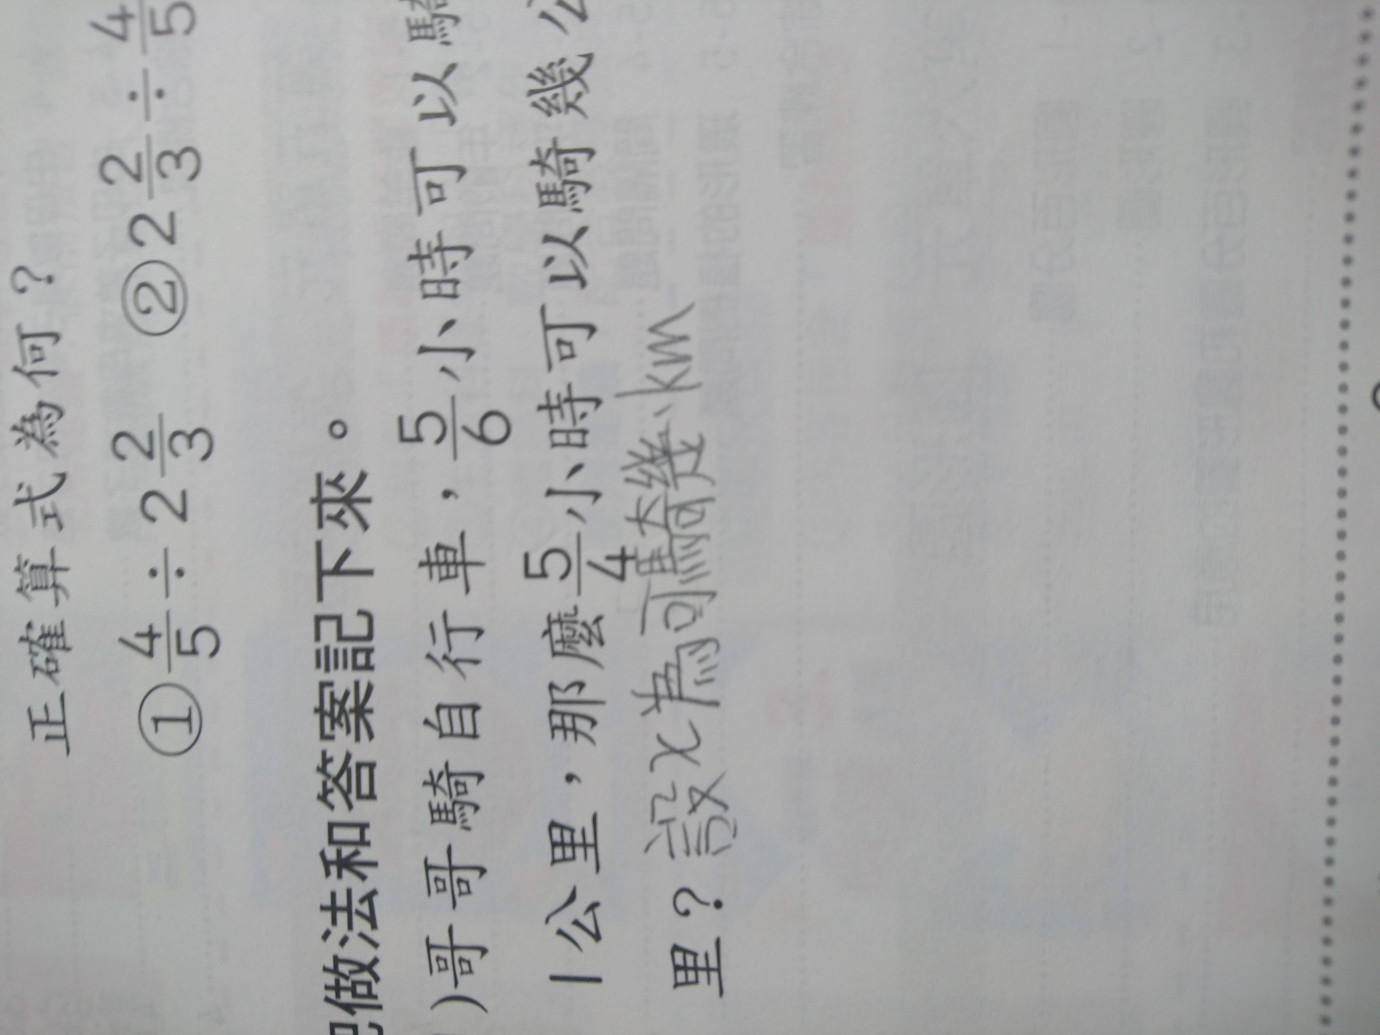 正確算式為何？
① 4/5 ÷ 2 2/3 ② 2 2/3 ÷ 4/5
把做法和答案記下來。
)哥哥騎自行車，5/6小時可以騎
1公里，那麼5/4小時可以騎幾公
里？設x為可騎幾km